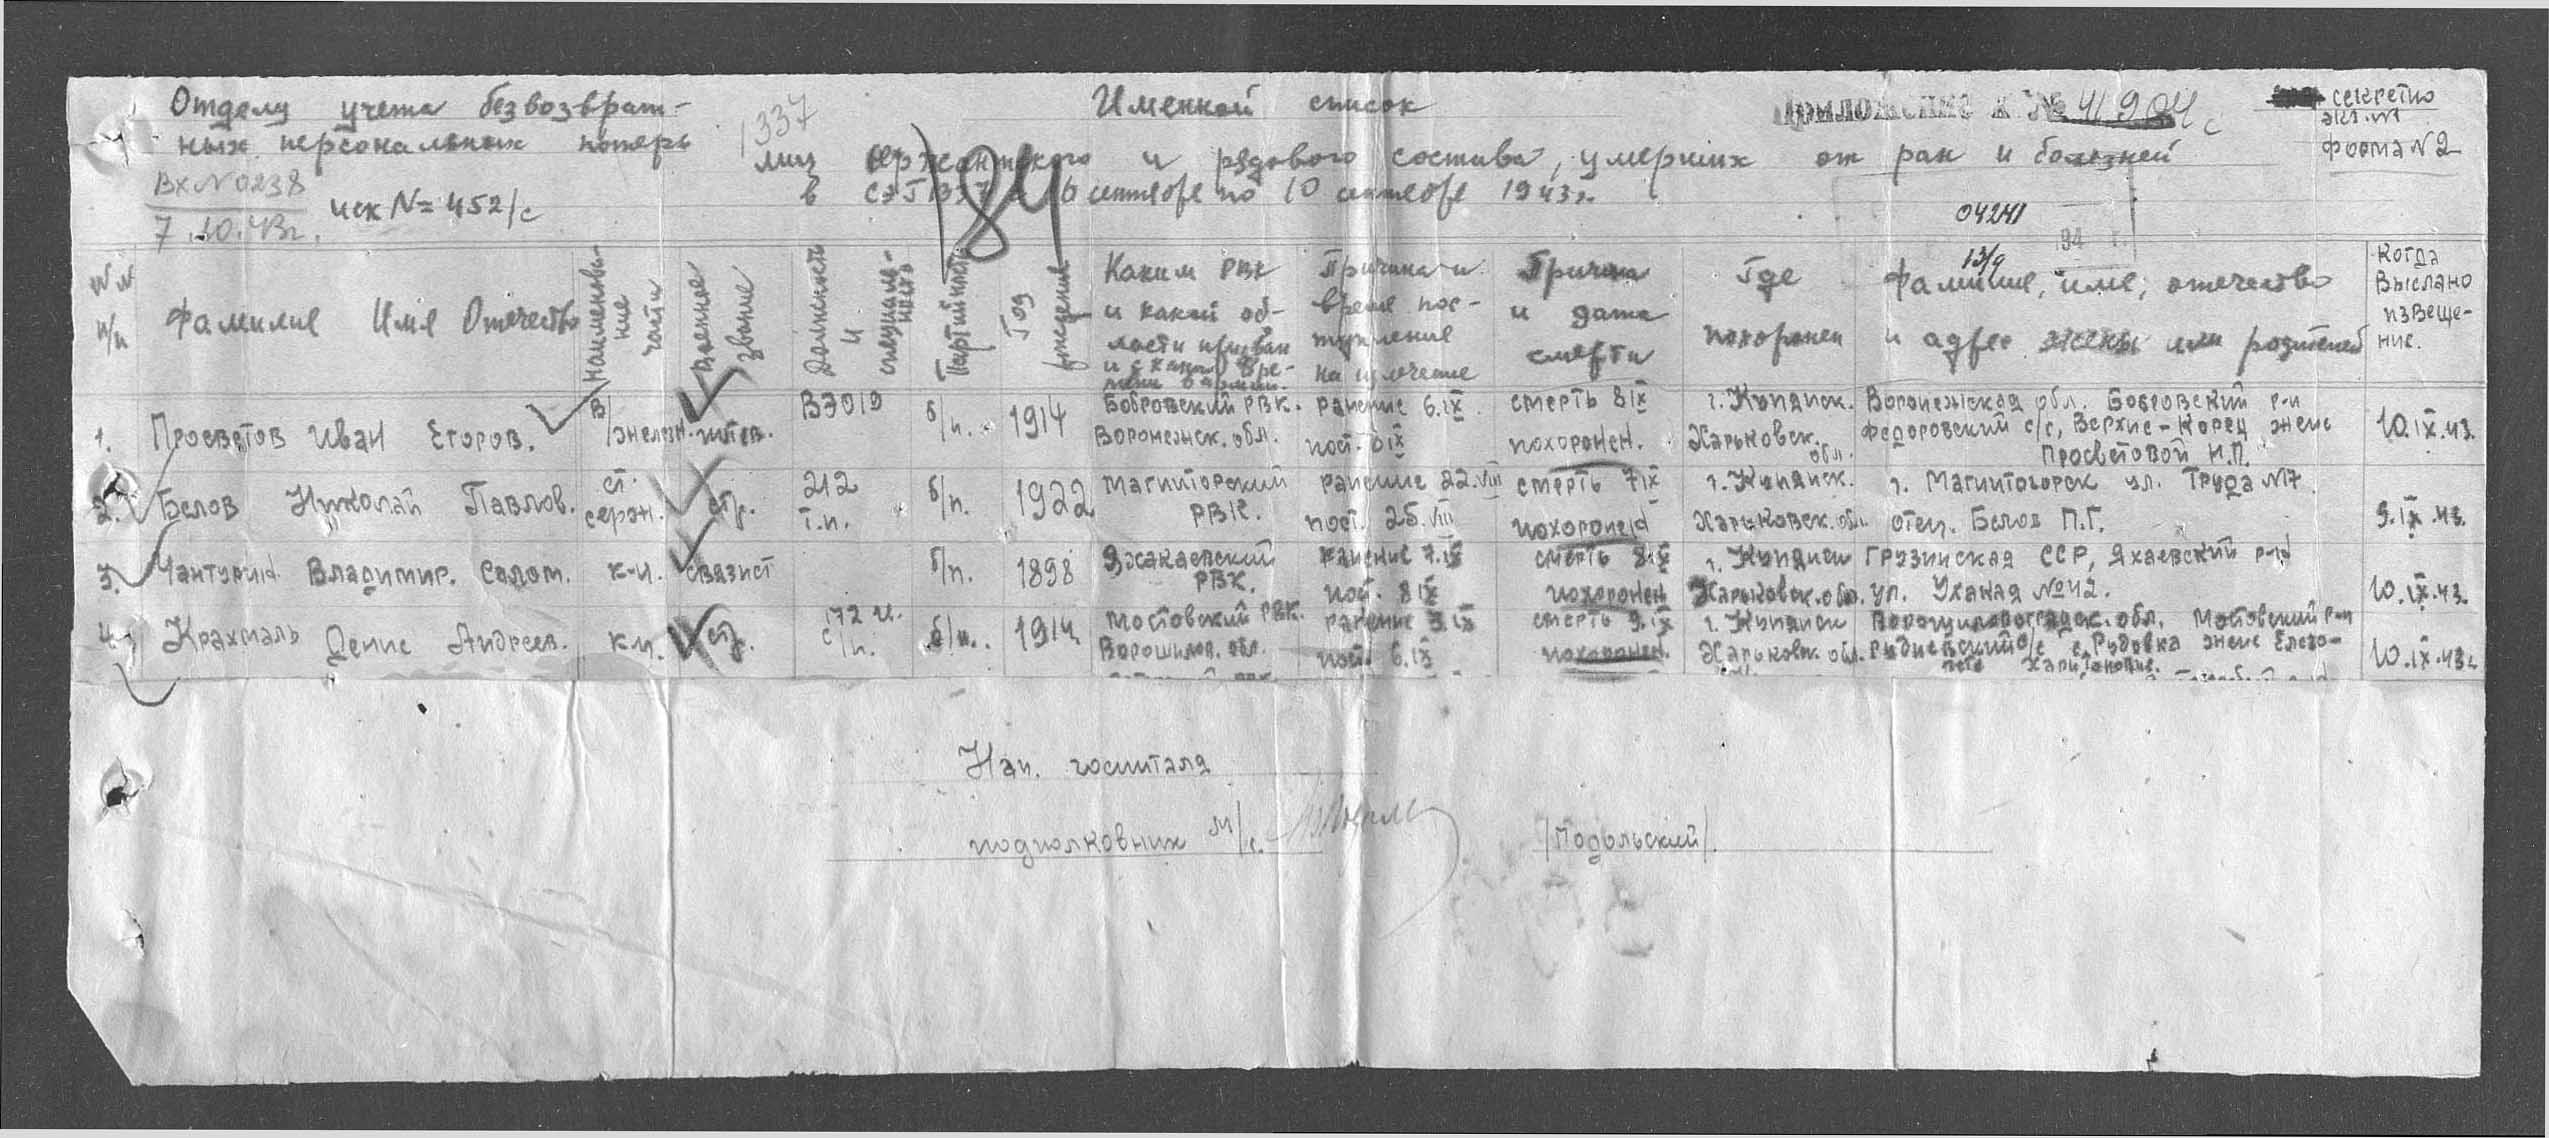 Отделу учета безвозврат-
ных персональных потерь
Вх N 0238
7.10.43г.
исх N= 452/с
1337
184
Именной список
лиц сержантского и рядового состава, умерших от ран и болезней
в СЭГ 1337 6 сентября по 10 сентября 1943г.
Приложение к № 41904 с
секретно
экз. N1
форма N 2
04241
194 г.
13/9
N N п/п
Фамилия Имя Отчество
Наименова-
ние
части
Военное
звание
Должность
и
специаль-
ность
Партийность
Год
рождения
Каким РВК
и какой об-
ласти призван
Причина и
время пос-
тупления
на излечение
Причина
и дата
смерти
Где
похоронен
Фамилия, имя, отчество
и адрес жены или родителей
Когда
выслано
извеще-
ние.
1. Просветов Иван Егоров. В/ 
ВЭ019 б/п. 1914
Бобровский РВК. Воронежск. обл.
ранение 6.IX. пост. 6 IX
смерть 8 IX похоронен.
г. Купянск. Харьковск. обл.
Воронежская обл. Бобровский р-н
Федоровский с/с, Верхне-Корец жене
Просветовой Н.П.
10.IX.43.
2. Белов Николай Павлов. ст. сержн. стр. 212 г.п. б/п. 1922
Магниторский РВК.
ранение 22.VIII пост. 25.VIII
смерть 7 IX похоронен
г. Купянск. Харьковск. обл.
г. Магнитогорск ул. Труда N17
отец. Белов П.Г.
9.IX.43.
3. Чантурия Владимир. Солом. к-ц. связист б/п. 1898
РВК.
ранение 7.IX пост. 8 IX
смерть 8 IX похоронен
г. Купянск Харьковск. обл.
Грузинская ССР, Яхаевский р-н
ул. Уханая №42.
10.IX.43.
4. Крахмаль Денис Андреев. кц. стр. 172 с/п. б/п. 1914
Мостовский РВК. Ворошилов. обл.
ранение 5.IX пост. 6.IX
смерть 9.IX похоронен.
г. Купянск Харьковск. обл.
Ворошиловоградск. обл. Мостовский р-н
с/с с. Рудовка жене Елеза-
10.IX.43г
Нач. госпиталя
подполковник м/с.
/Подольский/.